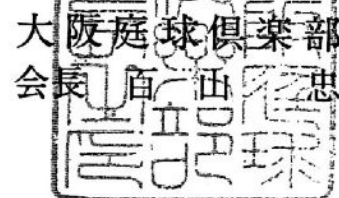 大阪庭球倶楽部
会長 百 山 忠